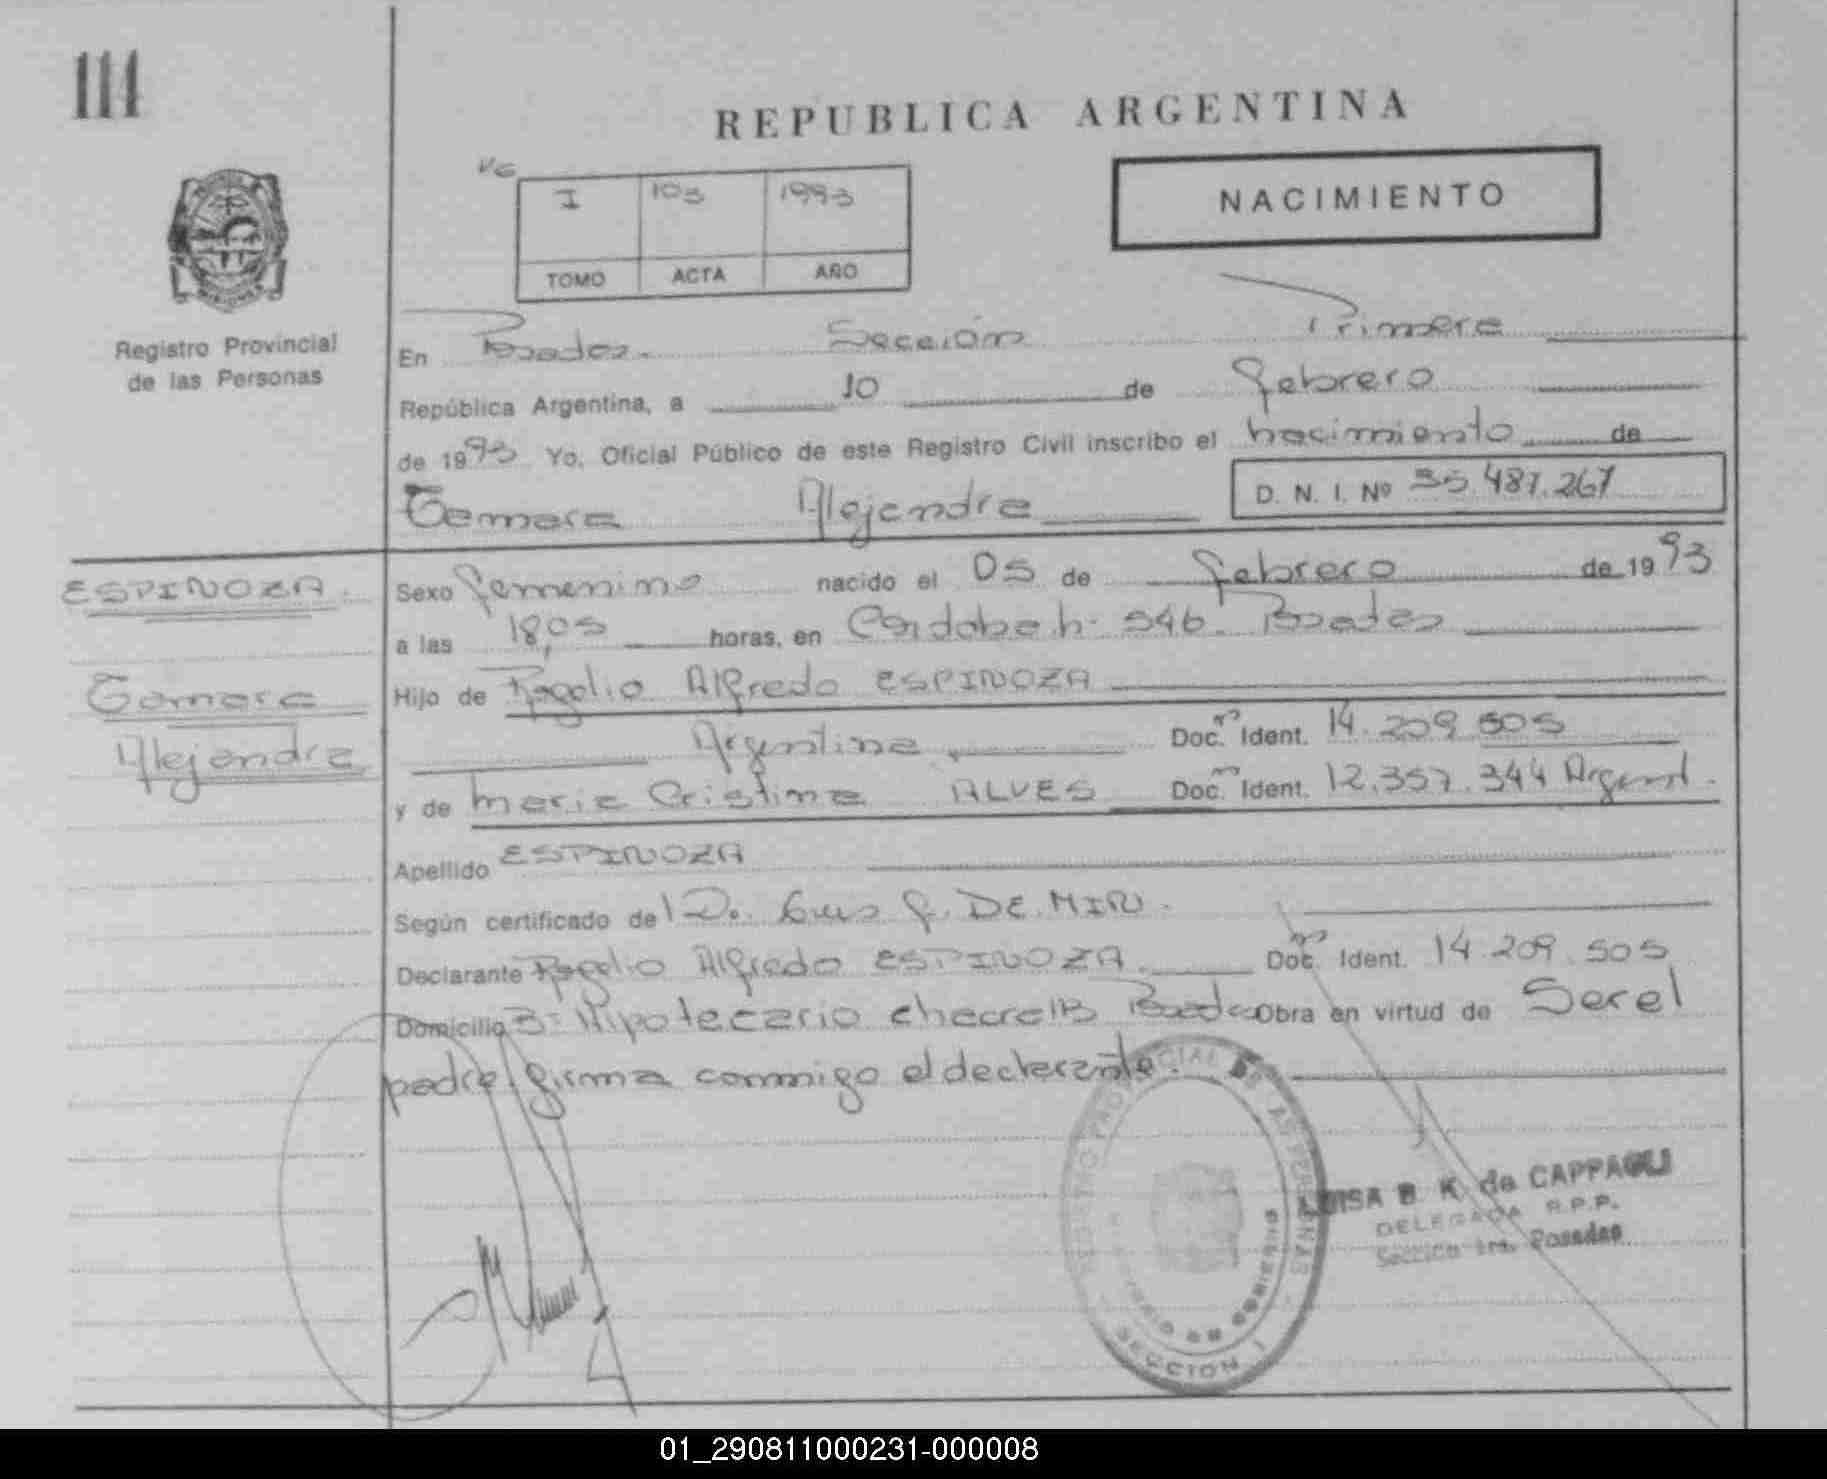 111
REPUBLICA ARGENTINA
I 103 1993
TOMO ACTA AÑO
NACIMIENTO
Registro Provincial
de las Personas
En Posadas. Sección Primera
República Argentina, a 10 de febrero
de 1993 Yo, Oficial Público de este Registro Civil inscribo el nacimiento de
Tamara Alejandra D. N. I. Nº 35.487.267
ESPINOZA
Tamara
Alejandra
Sexo femenino nacido el 05 de febrero de 1993
a las 18,05 horas, en Córdoba n. 546. Posadas
Hijo de Rogelio Alfredo ESPINOZA
Argentina Doc. Ident. 14.209.505
y de Maria Cristina ALVES Doc. Ident. 12.357.344 Argent.
Apellido ESPINOZA
Según certificado del Dr. Luis F. DE MIN.
Declarante Rogelio Alfredo ESPINOZA Doc. Ident. 14.209.505
Domicilio Bº Hipotecario chacra Posadas Obra en virtud de Ser el
padre, firma conmigo el declarante.
REGISTRO PROVINCIAL DE LAS PERSONAS
SECCION I
LUISA B K de CAPPAGLI
DELEGADA R.P.P.
Sección 1ra. Posadas
01_290811000231-000008